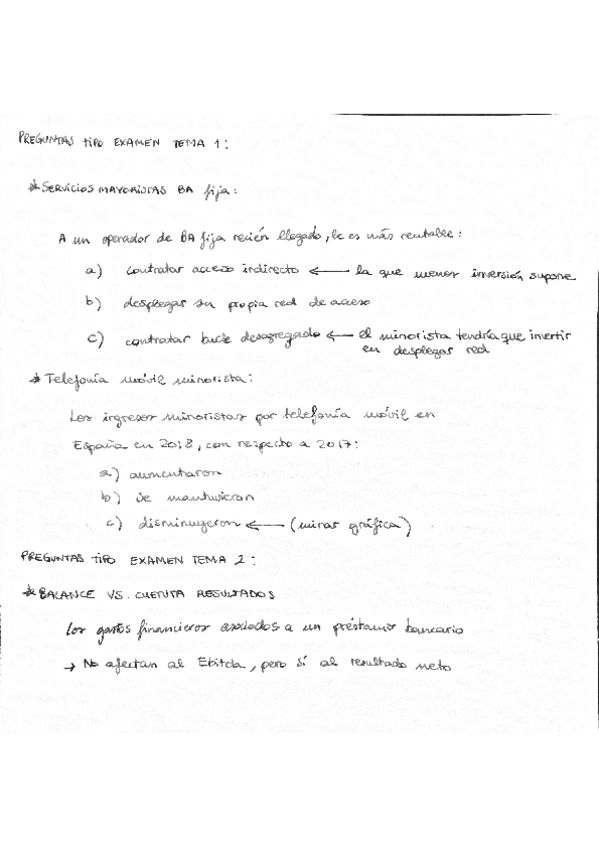 PREGUNTAS TIPO EXAMEN TEMA 1:
* SERVICIOS MAYORISTAS BA fija:
A un operador de BA fija recién llegado, le es más rentable:
a) contratar acceso indirecto ← la que menor inversión supone
b) desplegar su propia red de acceso
c) contratar bucle desagregado ← el minorista tendría que invertir
en desplegar red
* Telefonía móvil minorista:
Los ingresos minoristas por telefonía móvil en
España en 2018, con respecto a 2017:
a) aumentaron
b) se mantuvieran
c) disminuyeron ← (mirar gráfica)
PREGUNTAS TIPO EXAMEN TEMA 2:
* BALANCE VS. CUENTA RESULTADOS
Los gastos financieros asociados a un préstamo bancario
→ No afectan al Ebitda, pero sí al resultado neto